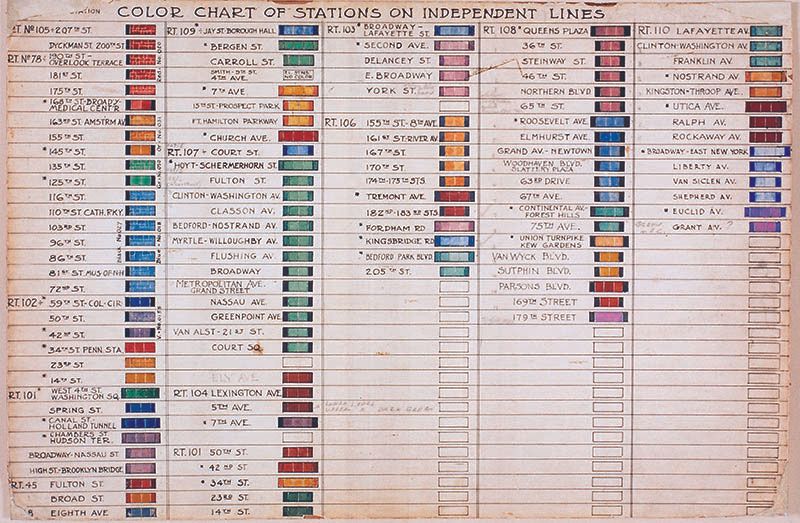 STATION
COLOR CHART OF STATIONS ON INDEPENDENT LINES
RT. Nº105÷207TH ST.
DYCKMAN ST. 200TH ST
RT. Nº78÷190TH ST-
OVERLOOK TERRACE
181ST ST.
175TH ST.
* 168TH ST-BROADY-
MEDICAL CENT'R
163RD ST-AMSTRM AV.
155TH ST.
* 145TH ST.
135TH ST.
* 125TH ST.
116TH ST.
110TH ST. CATH. PKY.
103RD ST.
96TH ST.
86TH ST.
81ST ST. MUS OF NH
72ND ST.
RT. 102÷* 59TH ST-COL-CIR.
50TH ST.
* 42ND ST.
* 34TH ST PENN. STA.
23RD ST.
* 14TH ST.
RT. 101* WEST 4TH ST.
WASHINGTON SQ.
SPRING ST.
* CANAL ST-
HOLLAND TUNNEL
* CHAMBERS ST.
HUDSON TER.
BROADWAY-NASSAU ST
HIGH ST-BROOKLYN BRIDGE
RT. 45 FULTON ST.
BROAD ST.
8 EIGHTH AVE.
RT. 109 * JAY ST. BOROUGH HALL
* BERGEN ST.
CARROLL ST.
SMITH-9TH ST.
4TH AVE.
EL. STNS.
NO COLOR
* 7TH AVE.
15TH ST-PROSPECT PARK
FT. HAMILTON PARKWAY
* CHURCH AVE.
RT. 107 ÷ COURT ST.
* HOYT-SCHERMERHORN ST.
FULTON ST.
CLINTON-WASHINGTON AV.
CLASSON AV.
BEDFORD-NOSTRAND AV.
MYRTLE-WILLOUGHBY AV.
FLUSHING AV.
BROADWAY
METROPOLITAN AVE.
GRAND STREET
NASSAU AVE.
GREENPOINT AVE.
VAN ALST-21ST ST.
COURT SQ.
ELY AVE
RT. 104 LEXINGTON AVE.
5TH AVE.
* 7TH AVE.
RT. 101 50TH ST.
* 42ND ST.
* 34TH ST.
23RD ST.
14TH ST.
RT. 103 * BROADWAY-
LAFAYETTE ST.
* SECOND AVE.
DELANCEY ST.
E. BROADWAY
YORK ST.
RT. 106 155TH ST-8TH AVE.
161ST ST-RIVER AV
167TH ST.
170TH ST.
174TH-175TH STS.
* TREMONT AVE.
182ND-183RD STS
FORDHAM RD
* KINGSBRIDGE RD
* BEDFORD PARK BLVD.
205TH ST.
RT. 108 * QUEENS PLAZA
36TH ST.
STEINWAY ST.
46TH ST.
NORTHERN BLVD
65TH ST.
* ROOSEVELT AVE.
ELMHURST AVE.
GRAND AV.-NEWTOWN
WOODHAVEN BLVD.
SLATTERY PLAZA
63RD DRIVE
67TH AVE.
* CONTINENTAL AV-
FOREST HILLS
75TH AVE.
* UNION TURNPIKE
KEW GARDENS
VAN WYCK BLVD.
SUTPHIN BLVD.
PARSONS BLVD.
169TH STREET
179TH STREET
RT. 110 LAFAYETTE AV.
CLINTON-WASHINGTON AV.
FRANKLIN AV.
* NOSTRAND AV.
KINGSTON-THROOP AVE.
* UTICA AVE.
RALPH AV.
ROCKAWAY AV.
* BROADWAY-EAST NEW YORK
LIBERTY AV.
VAN SICLEN AV.
SHEPHERD AV.
* EUCLID AV.
GRANT AV. ?